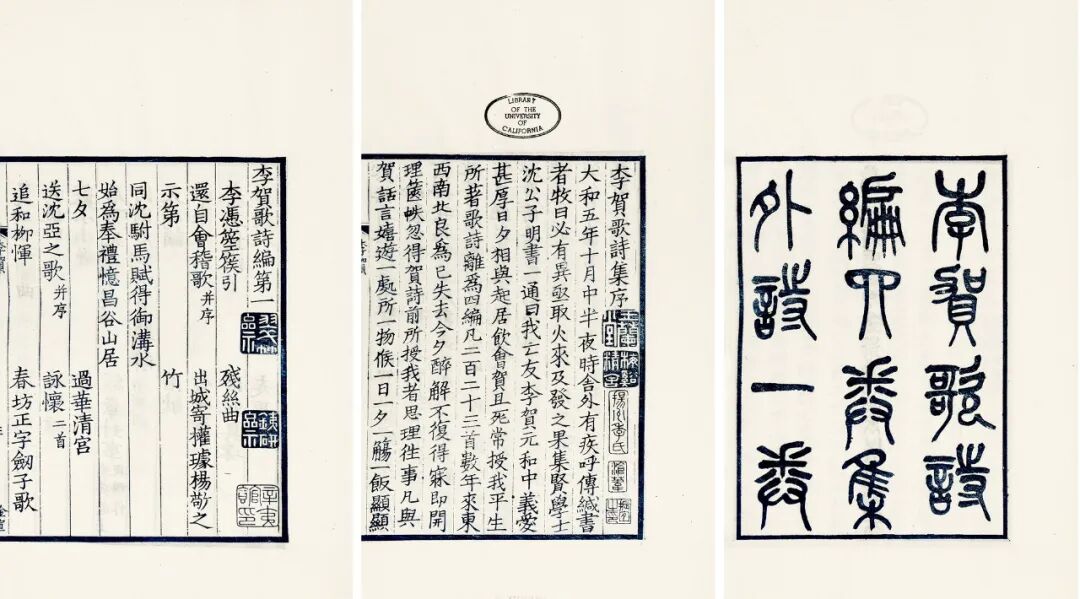 李賀歌詩
編四卷集
外詩一卷
LIBRARY
OF THE
UNIVERSITY
OF
CALIFORNIA
李賀歌詩集序
大和五年十月中半夜時舍外有疾呼傳緘書
者牧曰必有異亟取火來及發之果集賢學士
沈公子明書一通曰我亡友李賀元和中義愛
甚厚日夕相與起居飲會賀且死常授我平生
所著歌詩離爲四編凡二百二十三首數年來東
西南北良爲已失去今夕醉解不復得寐即開
理篋帙忽得賀詩前所授我者思理往事凡與
賀話言嬉遊一處所一物候一日一夕一觴一飯顯顯
李賀歌詩編第一
李憑箜篌引 殘絲曲
還自會稽歌并序 出城寄權璩楊敬之
示弟 竹
同沈駙馬賦得御溝水
始爲奉禮憶昌谷山居
七夕 過華清宮
送沈亞之歌并序 詠懷二首
追和柳惲 春坊正字劒子歌